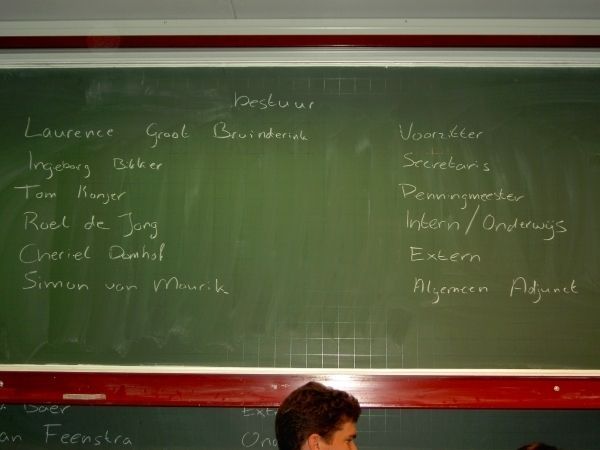 bestuur
Laurence Groot Bruinderink Voorzitter
Ingeborg Bikker Secretaris
Tom Konjer Penningmeester
Roel de Jong Intern/Onderwijs
Cheriel Domhof Extern
Simon van Mourik Algemeen Adjunct
Baer Ext
an Feenstra Ond